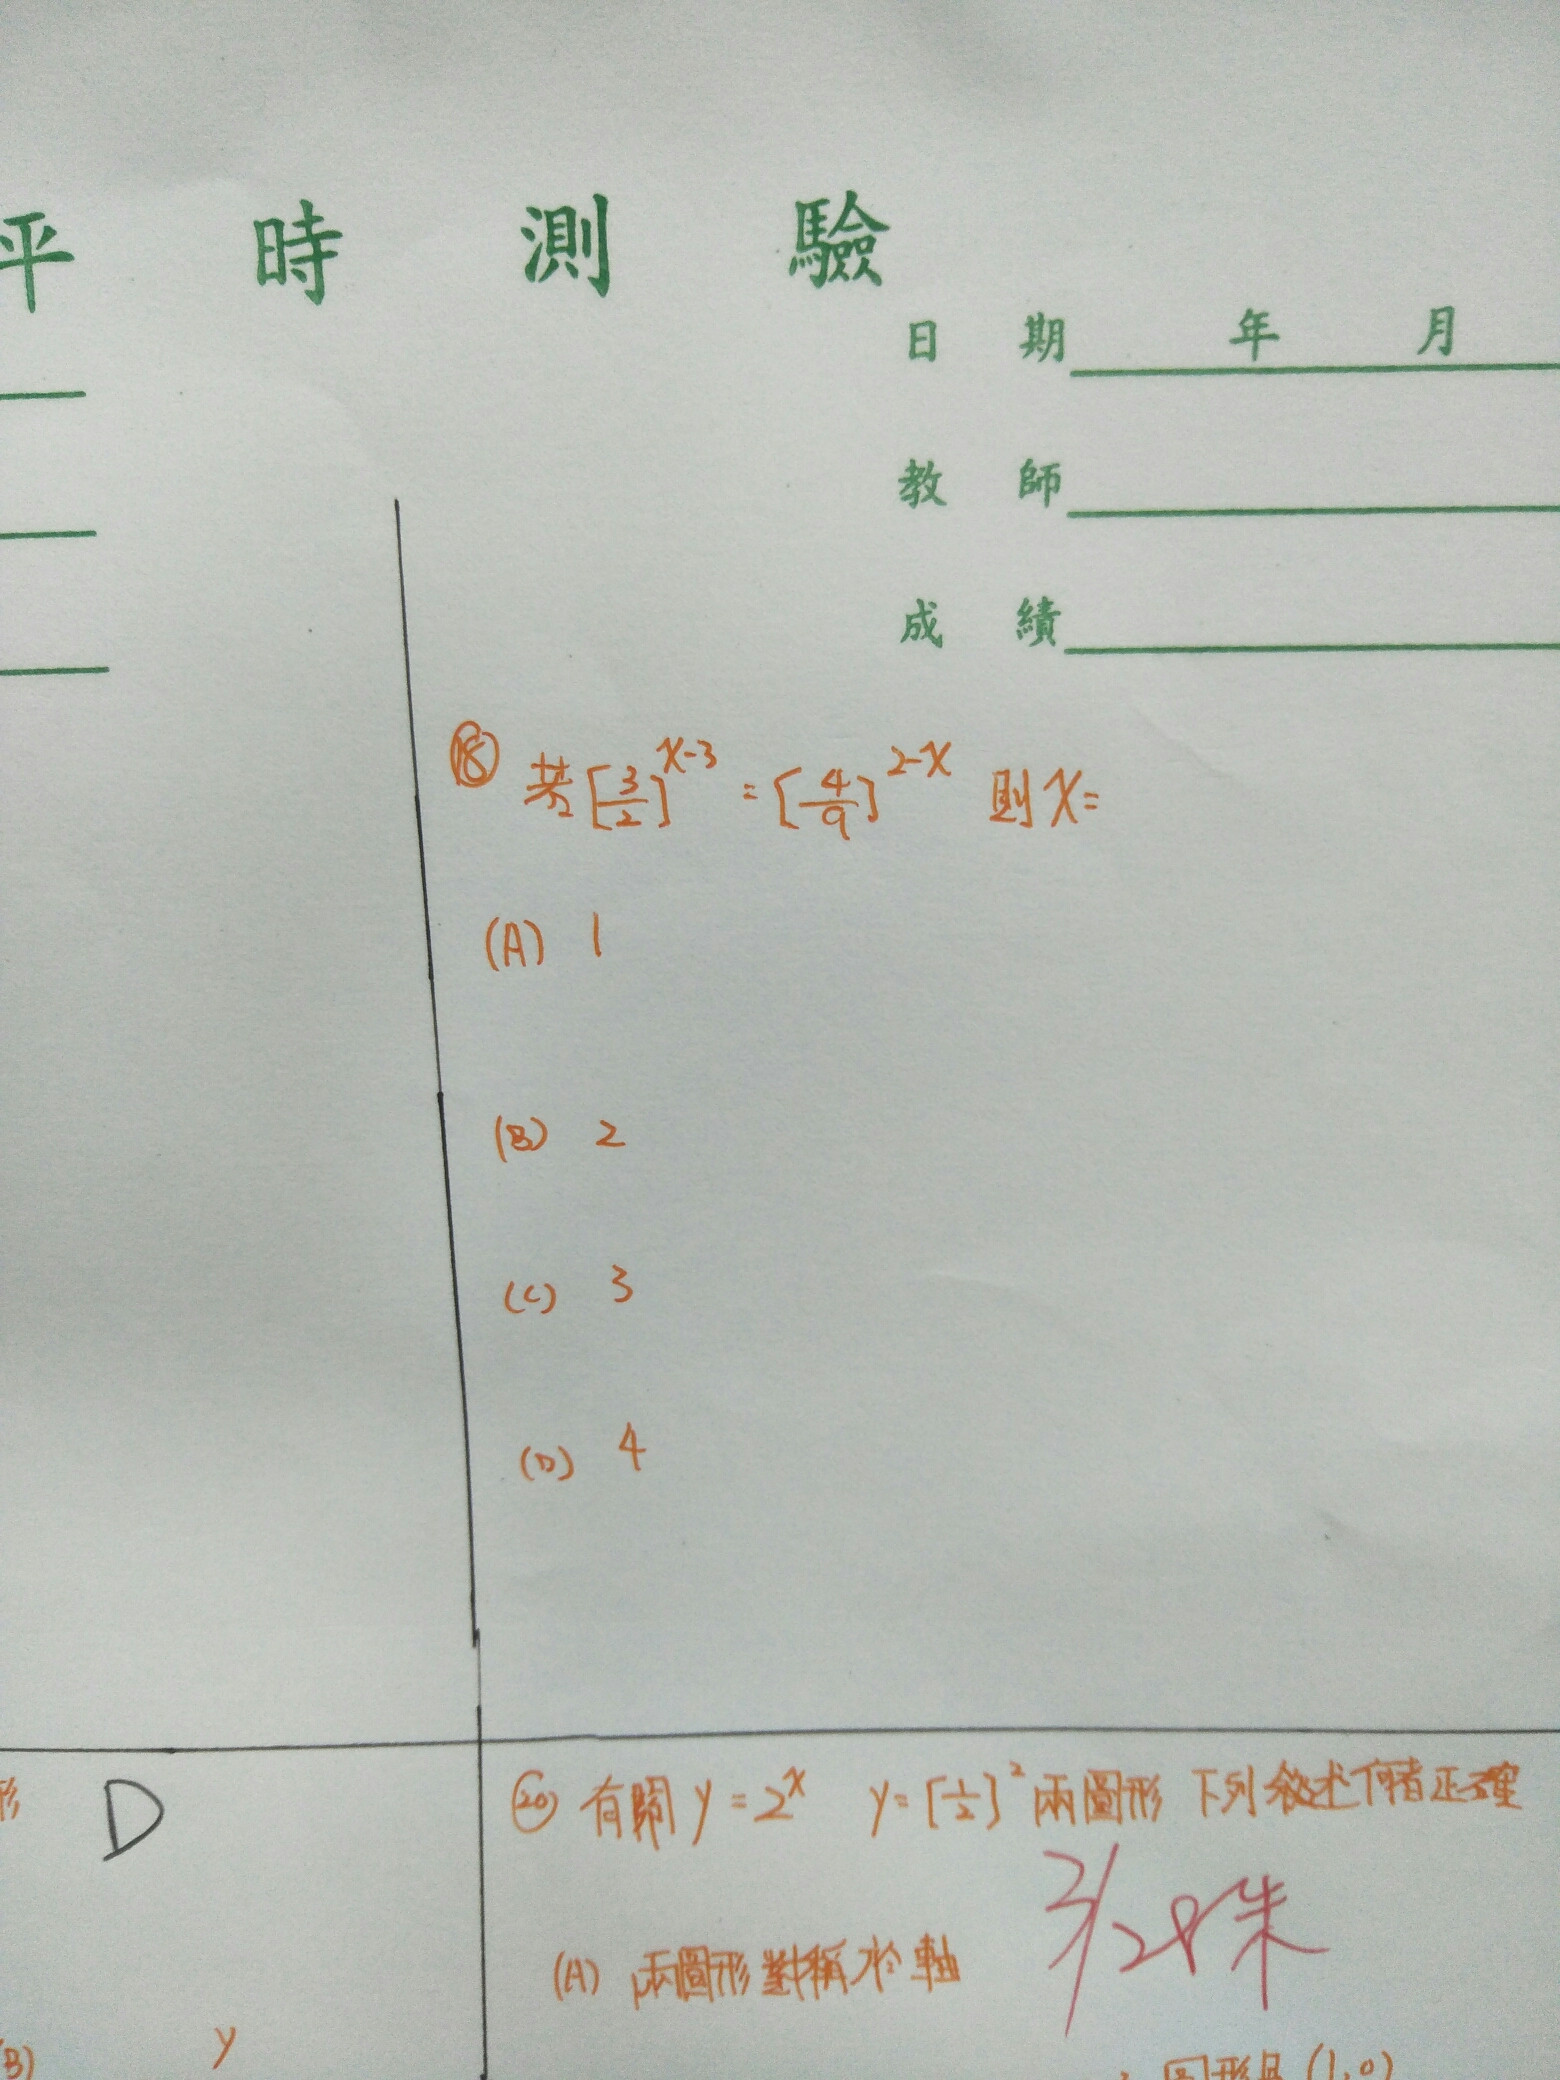 平時測驗
日期 年 月
教師
成績
⑱ 若[3/2]^x-3 = [4/9]^2-x 則x=
(A) 1
(B) 2
(C) 3
(D) 4
形 D
B) y
⑳ 有關 y=2^x y=[1/2]^2 兩圖形 下列敘述何者正確
(A) 兩圖形對稱於軸
(1,0)